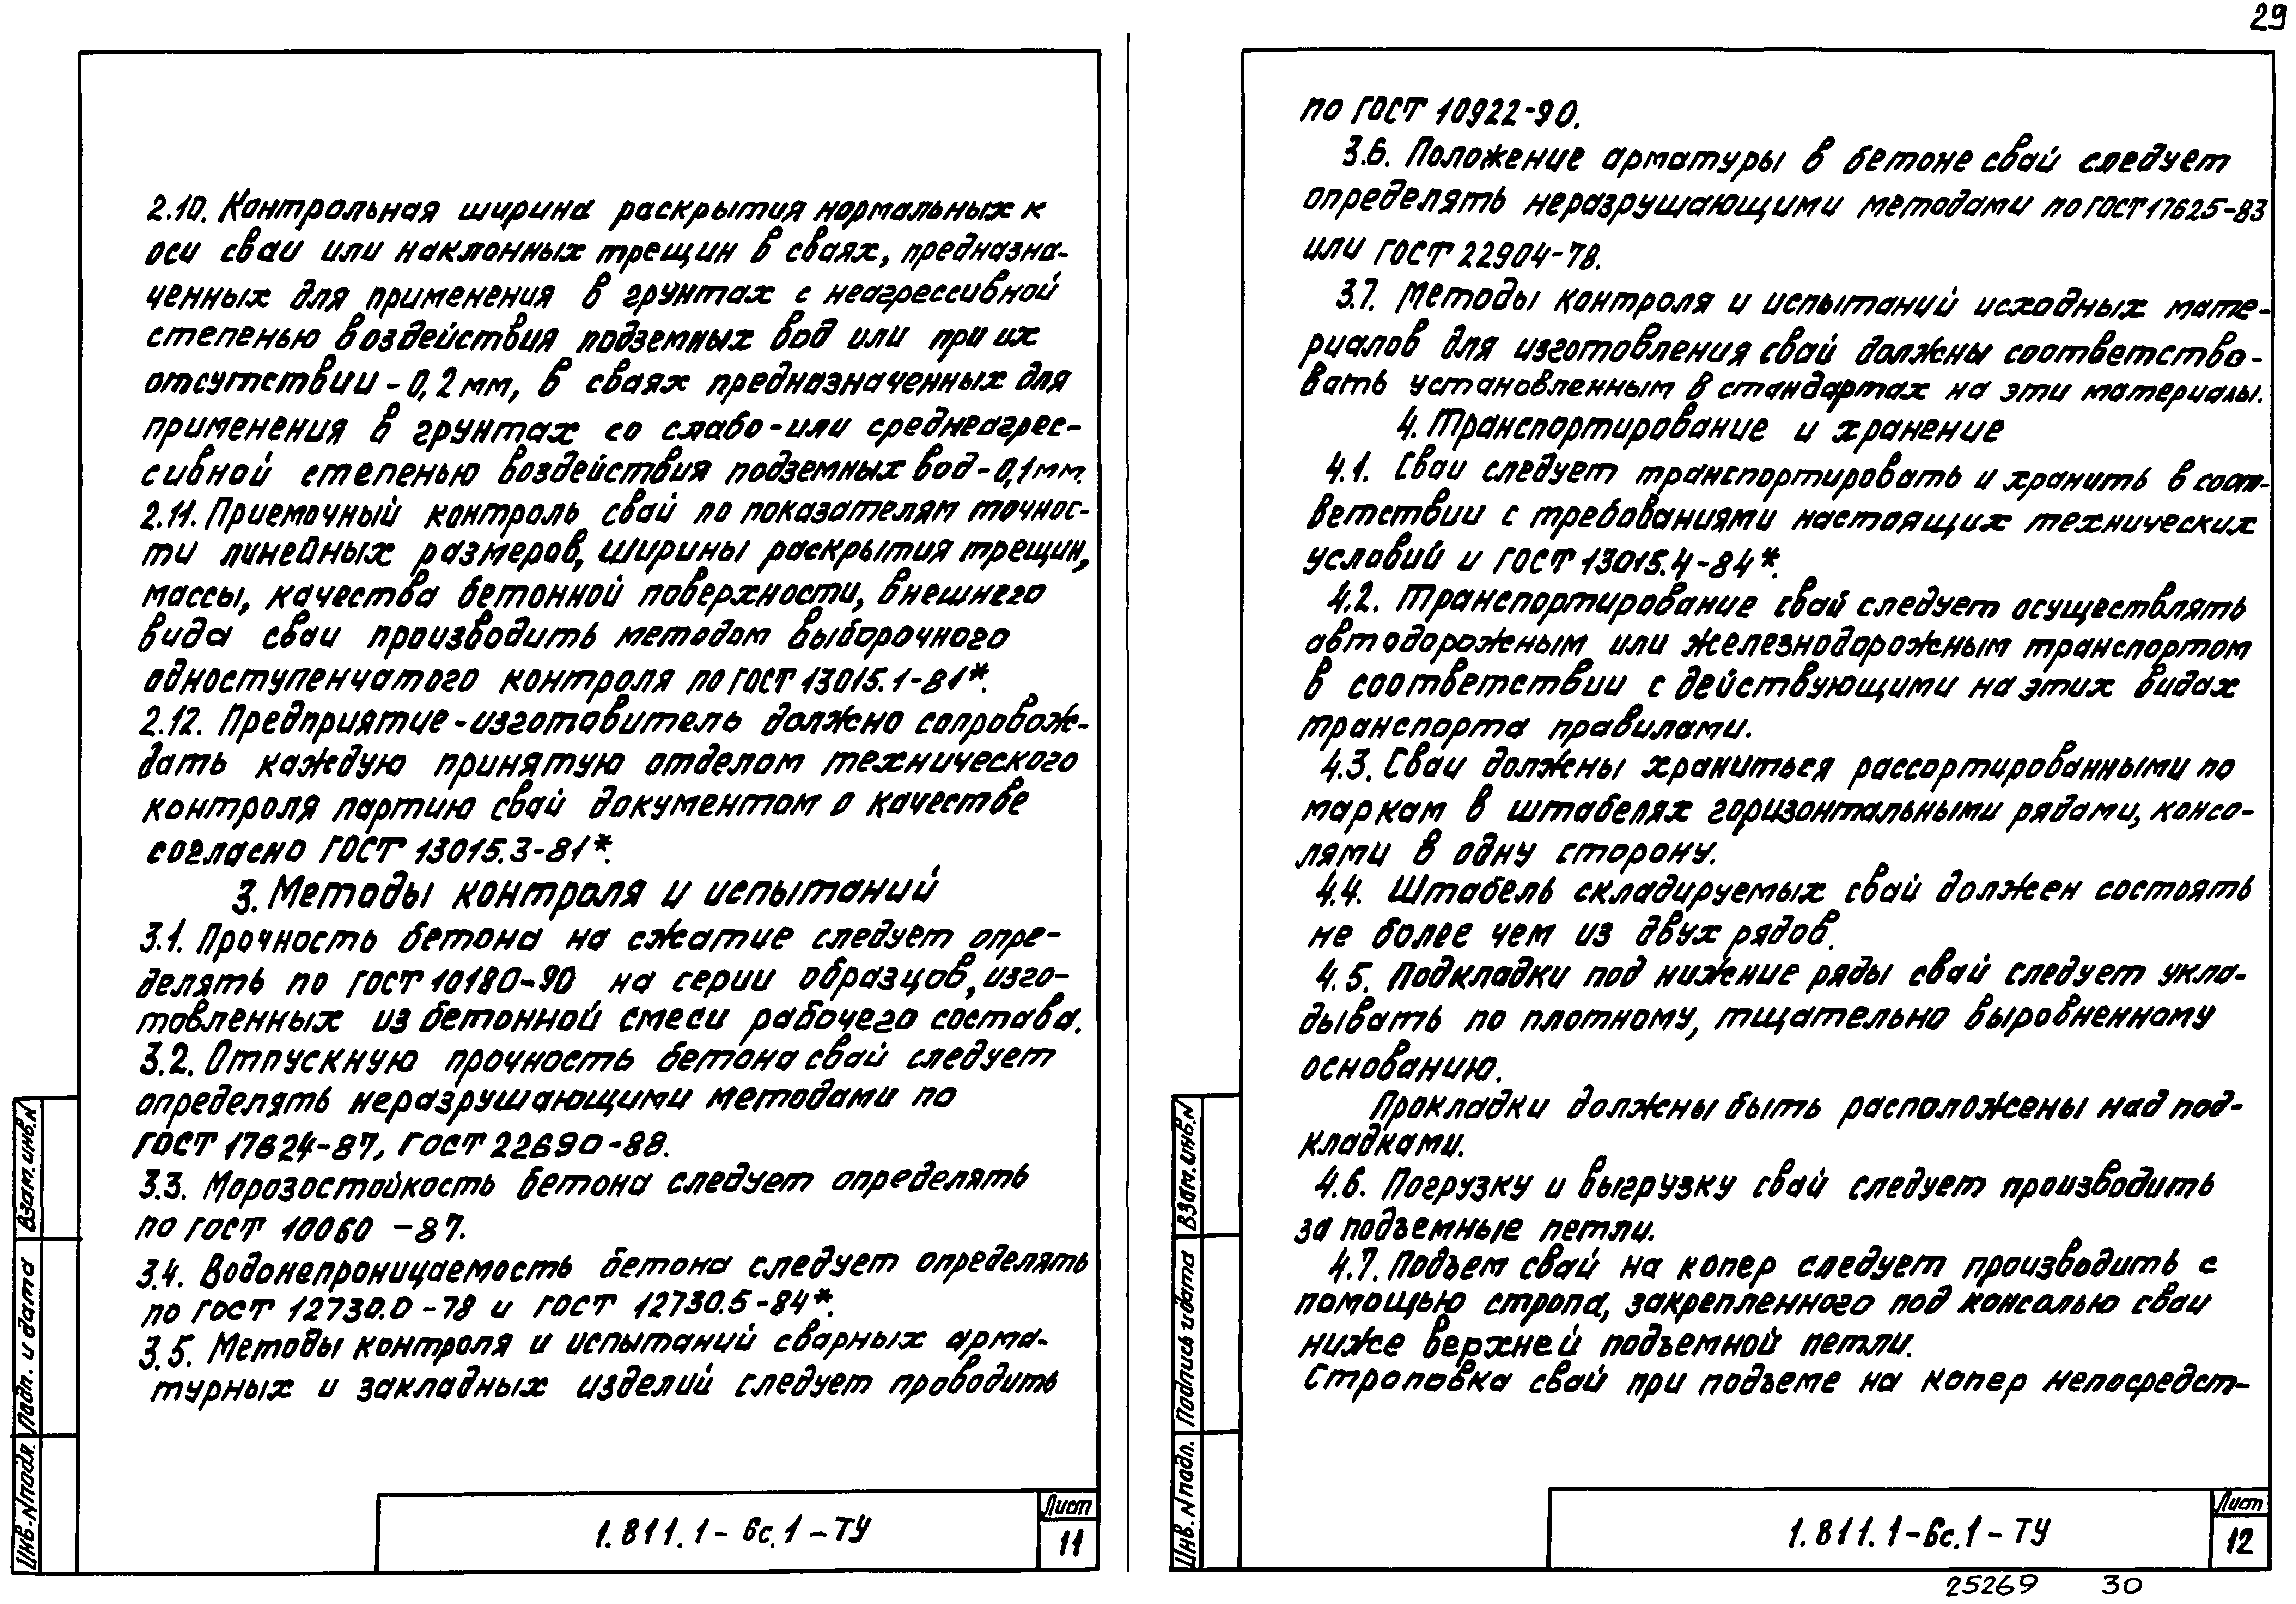 29
2.10. Контрольная ширина раскрытия нормальных к
оси сваи или наклонных трещин в сваях, предназна-
ченных для применения в грунтах с неагрессивной
степенью воздействия подземных вод или при их
отсутствии - 0,2 мм, в сваях предназначенных для
применения в грунтах со слабо-или среднеагрес-
сивной степенью воздействия подземных вод - 0,1 мм.
2.11. Приемочный контроль свай по показателям точнос-
ти линейных размеров, ширины раскрытия трещин,
массы, качества бетонной поверхности, внешнего
вида сваи производить методом выборочного
одноступенчатого контроля по ГОСТ 13015.1-81*.
2.12. Предприятие-изготовитель должно сопровож-
дать каждую принятую отделом технического
контроля партию свай документом о качестве
согласно ГОСТ 13015.3-81*.
3. Методы контроля и испытаний
3.1. Прочность бетона на сжатие следует опре-
делять по ГОСТ 10180-90 на серии образцов, изго-
товленных из бетонной смеси рабочего состава.
3.2. Отпускную прочность бетона свай следует
определять неразрушающими методами по
ГОСТ 17624-87, ГОСТ 22690-88.
3.3. Морозостойкость бетона следует определять
по ГОСТ 10060 -87.
3.4. Водонепроницаемость бетона следует определять
по ГОСТ 12730.0-78 и ГОСТ 12730.5-84*.
3.5. Методы контроля и испытаний сварных арма-
турных и закладных изделий следует проводить
Инв.№подл. Подп. и дата Взам.инв.№
1.811.1-6с.1-ТУ
Лист
11
по ГОСТ 10922-90.
3.6. Положение арматуры в бетоне свай следует
определять неразрушающими методами по ГОСТ 17625-83
или ГОСТ 22904-78.
3.7. Методы контроля и испытаний исходных мате-
риалов для изготовления свай должны соответство-
вать установленным в стандартах на эти материалы.
4. Транспортирование и хранение
4.1. Сваи следует транспортировать и хранить в соот-
ветствии с требованиями настоящих технических
условий и ГОСТ 13015.4-84*.
4.2. Транспортирование свай следует осуществлять
автодорожным или железнодорожным транспортом
в соответствии с действующими на этих видах
транспорта правилами.
4.3. Сваи должны храниться рассортированными по
маркам в штабелях горизонтальными рядами, консо-
лями в одну сторону.
4.4. Штабель складируемых свай должен состоять
не более чем из двух рядов.
4.5. Подкладки под нижние ряды свай следует укла-
дывать по плотному, тщательно выровненному
основанию.
Прокладки должны быть расположены над под-
кладками.
4.6. Погрузку и выгрузку свай следует производить
за подъемные петли.
4.7. Подъем свай на копер следует производить с
помощью стропа, закрепленного под консолью сваи
ниже верхней подъемной петли.
Строповка свай при подъеме на копер непосредст-
Инв.№подл. Подпись и дата Взам.инв.№
1.811.1-6с.1-ТУ
Лист
12
25269 30